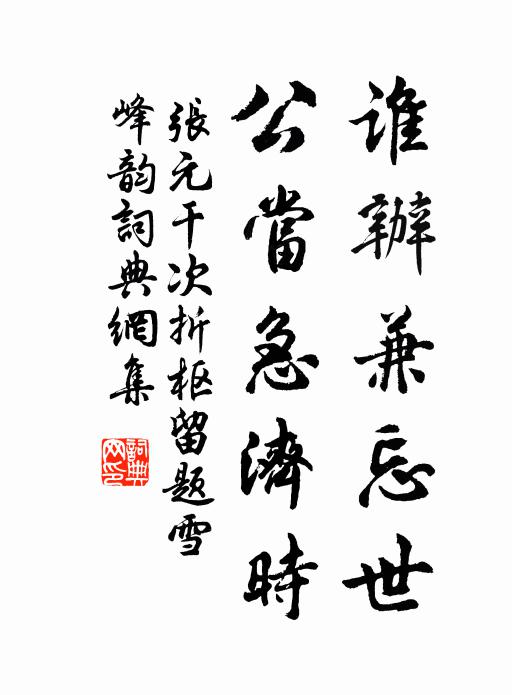 誰辦兼忘世
公當急濟時
張元干次折枢留題雪
峰韵詞典網集
詞典网印